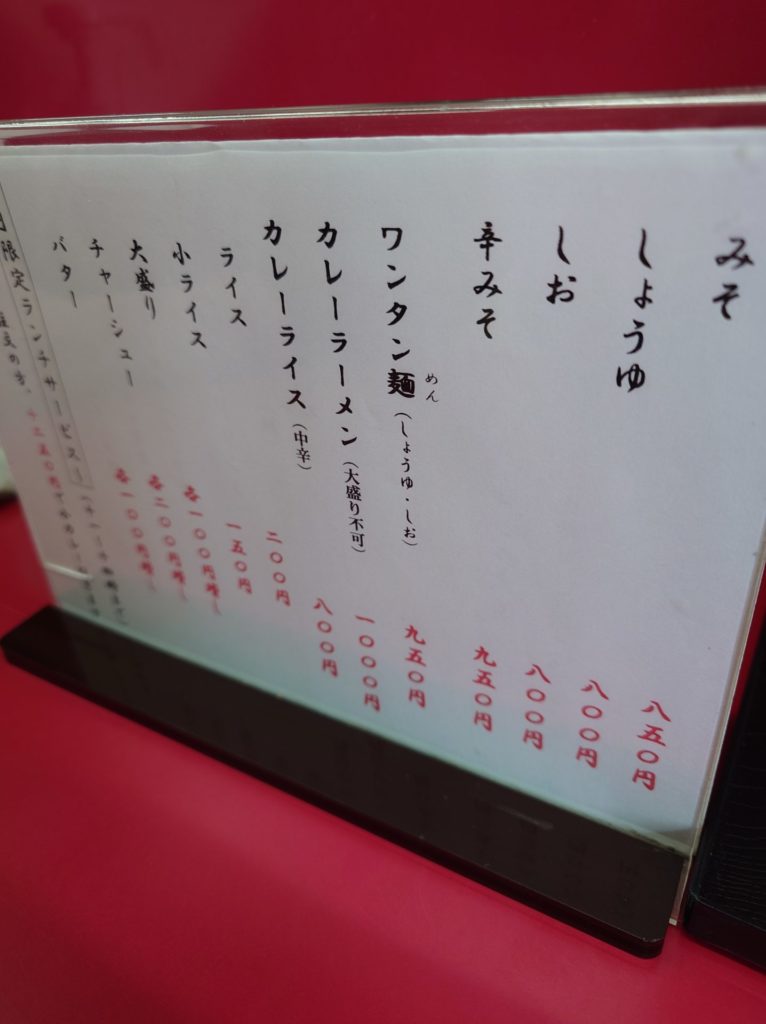 みそ 八五〇円
しょうゆ 八〇〇円
しお 八〇〇円
辛みそ 九五〇円
ワンタン麺(しょうゆ・しお) 九五〇円
めん
カレーラーメン(大盛り不可) 一〇〇〇円
カレーライス(中辛) 八〇〇円
ライス 二〇〇円
小ライス 一五〇円
大盛り 一〇〇円増し
チャーシュー 二〇〇円増し
バター 一〇〇円増し
限定ランチサービス
注文の方、